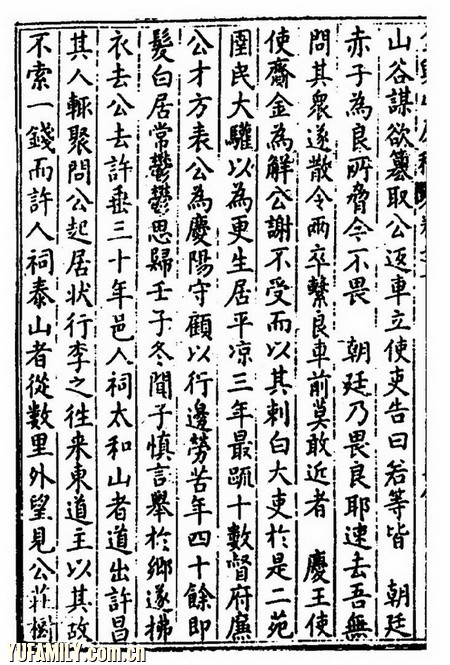 山谷謀欲篡取公返車立使吏告曰若等皆 朝廷
赤子為良所脅今不畏 朝廷乃畏良耶速去吾無
問其衆遂散令兩卒繫良車前莫敢近者 慶王使
使齎金為解公謝不受而以其刺白大吏於是二苑
圉民大驩以為更生居平凉三年最䟽十數督府廉
公才方表公為慶陽守顧以行邊勞苦年四十餘即
髮白居常鬱鬱思歸壬子冬聞子慎言舉於鄉遂拂
衣去公去許垂三十年邑人祠太和山者道出許昌
其人輙聚問公起居状行李之徃来東道主以其故
不索一錢而許人祠泰山者從數里外望見公莊
YUFAMILY.com.cn